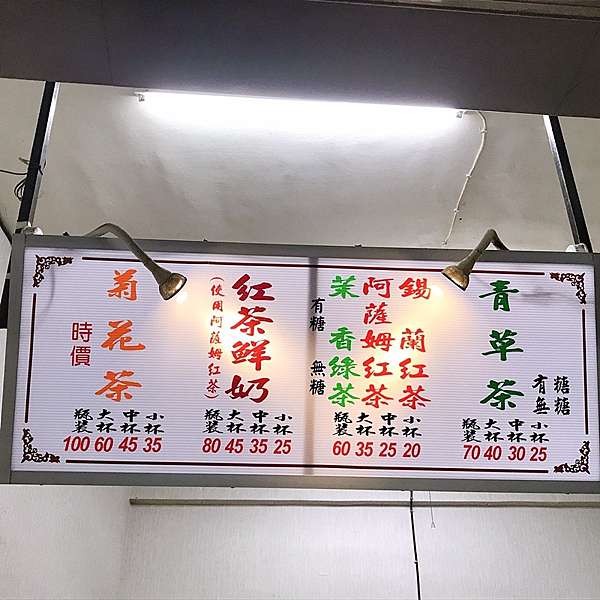 青草茶
有糖
無糖
瓶裝 大杯 中杯 小杯
70 40 30 25
錫蘭紅茶
阿薩姆紅茶
茉香綠茶
有糖
無糖
瓶裝 大杯 中杯 小杯
60 35 25 20
紅茶鮮奶
(使用阿薩姆紅茶)
瓶裝 大杯 中杯 小杯
80 45 35 25
菊花茶
時價
瓶裝 大杯 中杯 小杯
100 60 45 35